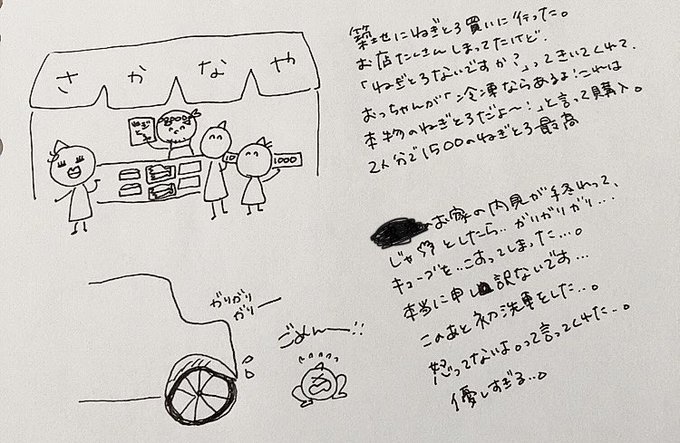 さかなや
ねぎ
とろ
10
1000
築地にねぎとろ買いに行った。
お店たくさんしまってたけど、
「ねぎとろないですか?」ってきいてくれて、
おっちゃんが「冷凍ならあるよ!これは
本物のねぎとろだよ〜!」と言って購入。
2人分で1500のねぎとろ最高
お家の内見が手きわって、
としたら…ガリガリガリ…
キューブを…こすってしまった…。
本当に申し訳ないです…
このあと初洗車をした…。
怒ってないよ。って言ってくれた…。
優しすぎる…。
がりがり
がりー
ごめんー!!